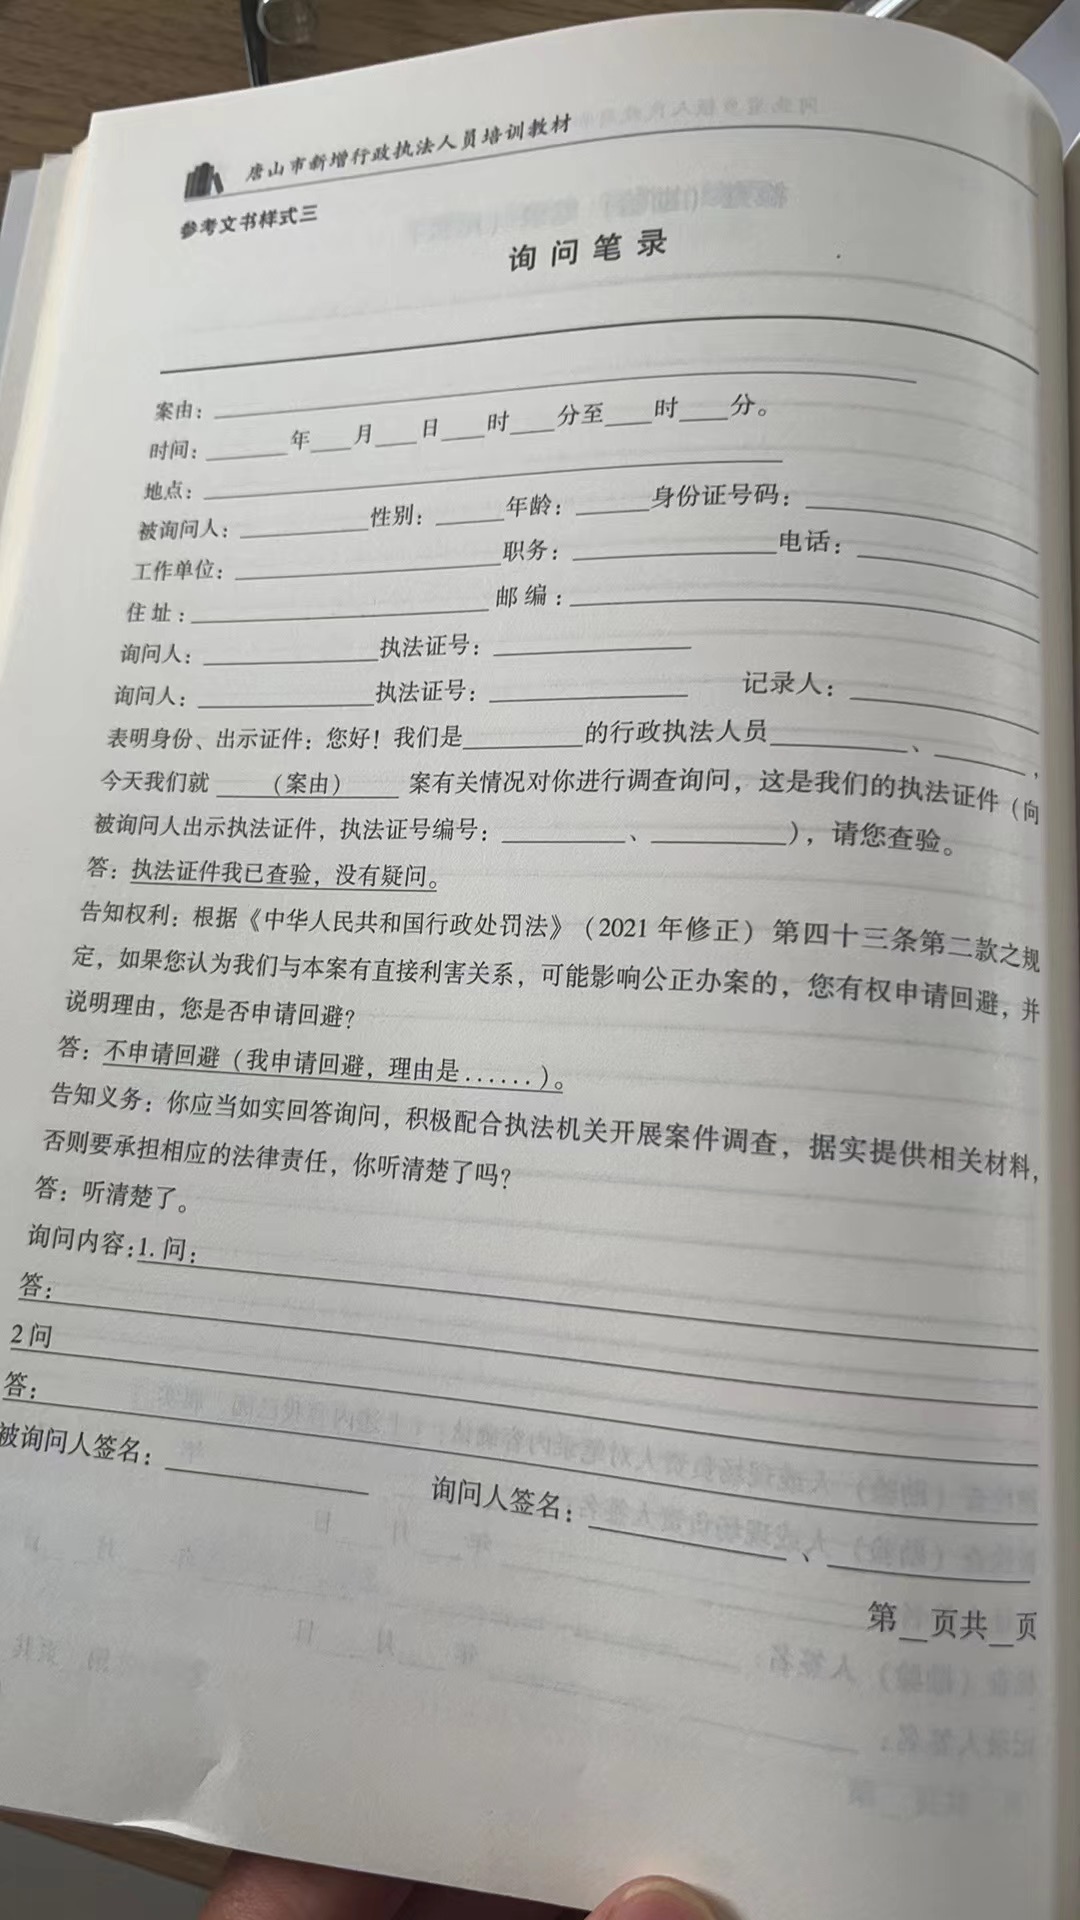 唐山市新增行政执法人员培训教材
参考文书样式三
询问笔录
案由：____________
时间：____年__月__日__时__分至__时__分。
地点：____________
被询问人：______性别：____年龄：____身份证号码：________
工作单位：____________职务：________电话：________
住址：____________邮编：____________
询问人：________执法证号：________
询问人：________执法证号：________ 记录人：________
表明身份、出示证件：您好！我们是______的行政执法人员______、______，
今天我们就__（案由）__案有关情况对你进行调查询问，这是我们的执法证件（向
被询问人出示执法证件，执法证号编号：______、______），请您查验。
答：执法证件我已查验，没有疑问。
告知权利：根据《中华人民共和国行政处罚法》（2021年修正）第四十三条第二款之规
定，如果您认为我们与本案有直接利害关系，可能影响公正办案的，您有权申请回避，并
说明理由，您是否申请回避？
答：不申请回避（我申请回避，理由是......）。
告知义务：你应当如实回答询问，积极配合执法机关开展案件调查，据实提供相关材料，
否则要承担相应的法律责任，你听清楚了吗？
答：听清楚了。
询问内容：1.问：
答：
2问
答：
被询问人签名：________ 询问人签名：________、________
第__页共__页